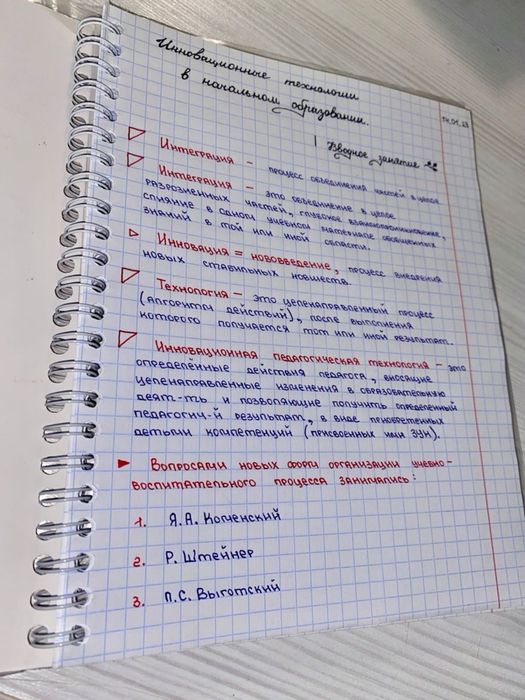 Инновационные технологии
в начальном образовании.
Вводное занятие
Интеграция - процесс объединения частей в целое
Интеграция - это объединение в целое
разрозненных частей, глубокое взаимопроникновение,
слияние в одном учебном материале обобщённых
знаний в той или иной области.
Инновация = нововведение, процесс внедрения
новых стабильных новшеств.
Технология - это целенаправленный процесс
(алгоритм действий), после выполнения
которого получается тот или иной результат.
Инновационная педагогическая технология - это
определённые действия педагога, вносящие
целенаправленные изменения в образовательную
деят-ть и позволяющие получить определённый
педагогич-й результат, в виде приобретенных
детьми компетенций (присвоенных ими ЗУН).
Вопросами новых форм организации учебно-
воспитательного процесса занимались:
1. Я.А. Коменский
2. Р. Штейнер
3. Л.С. Выготский